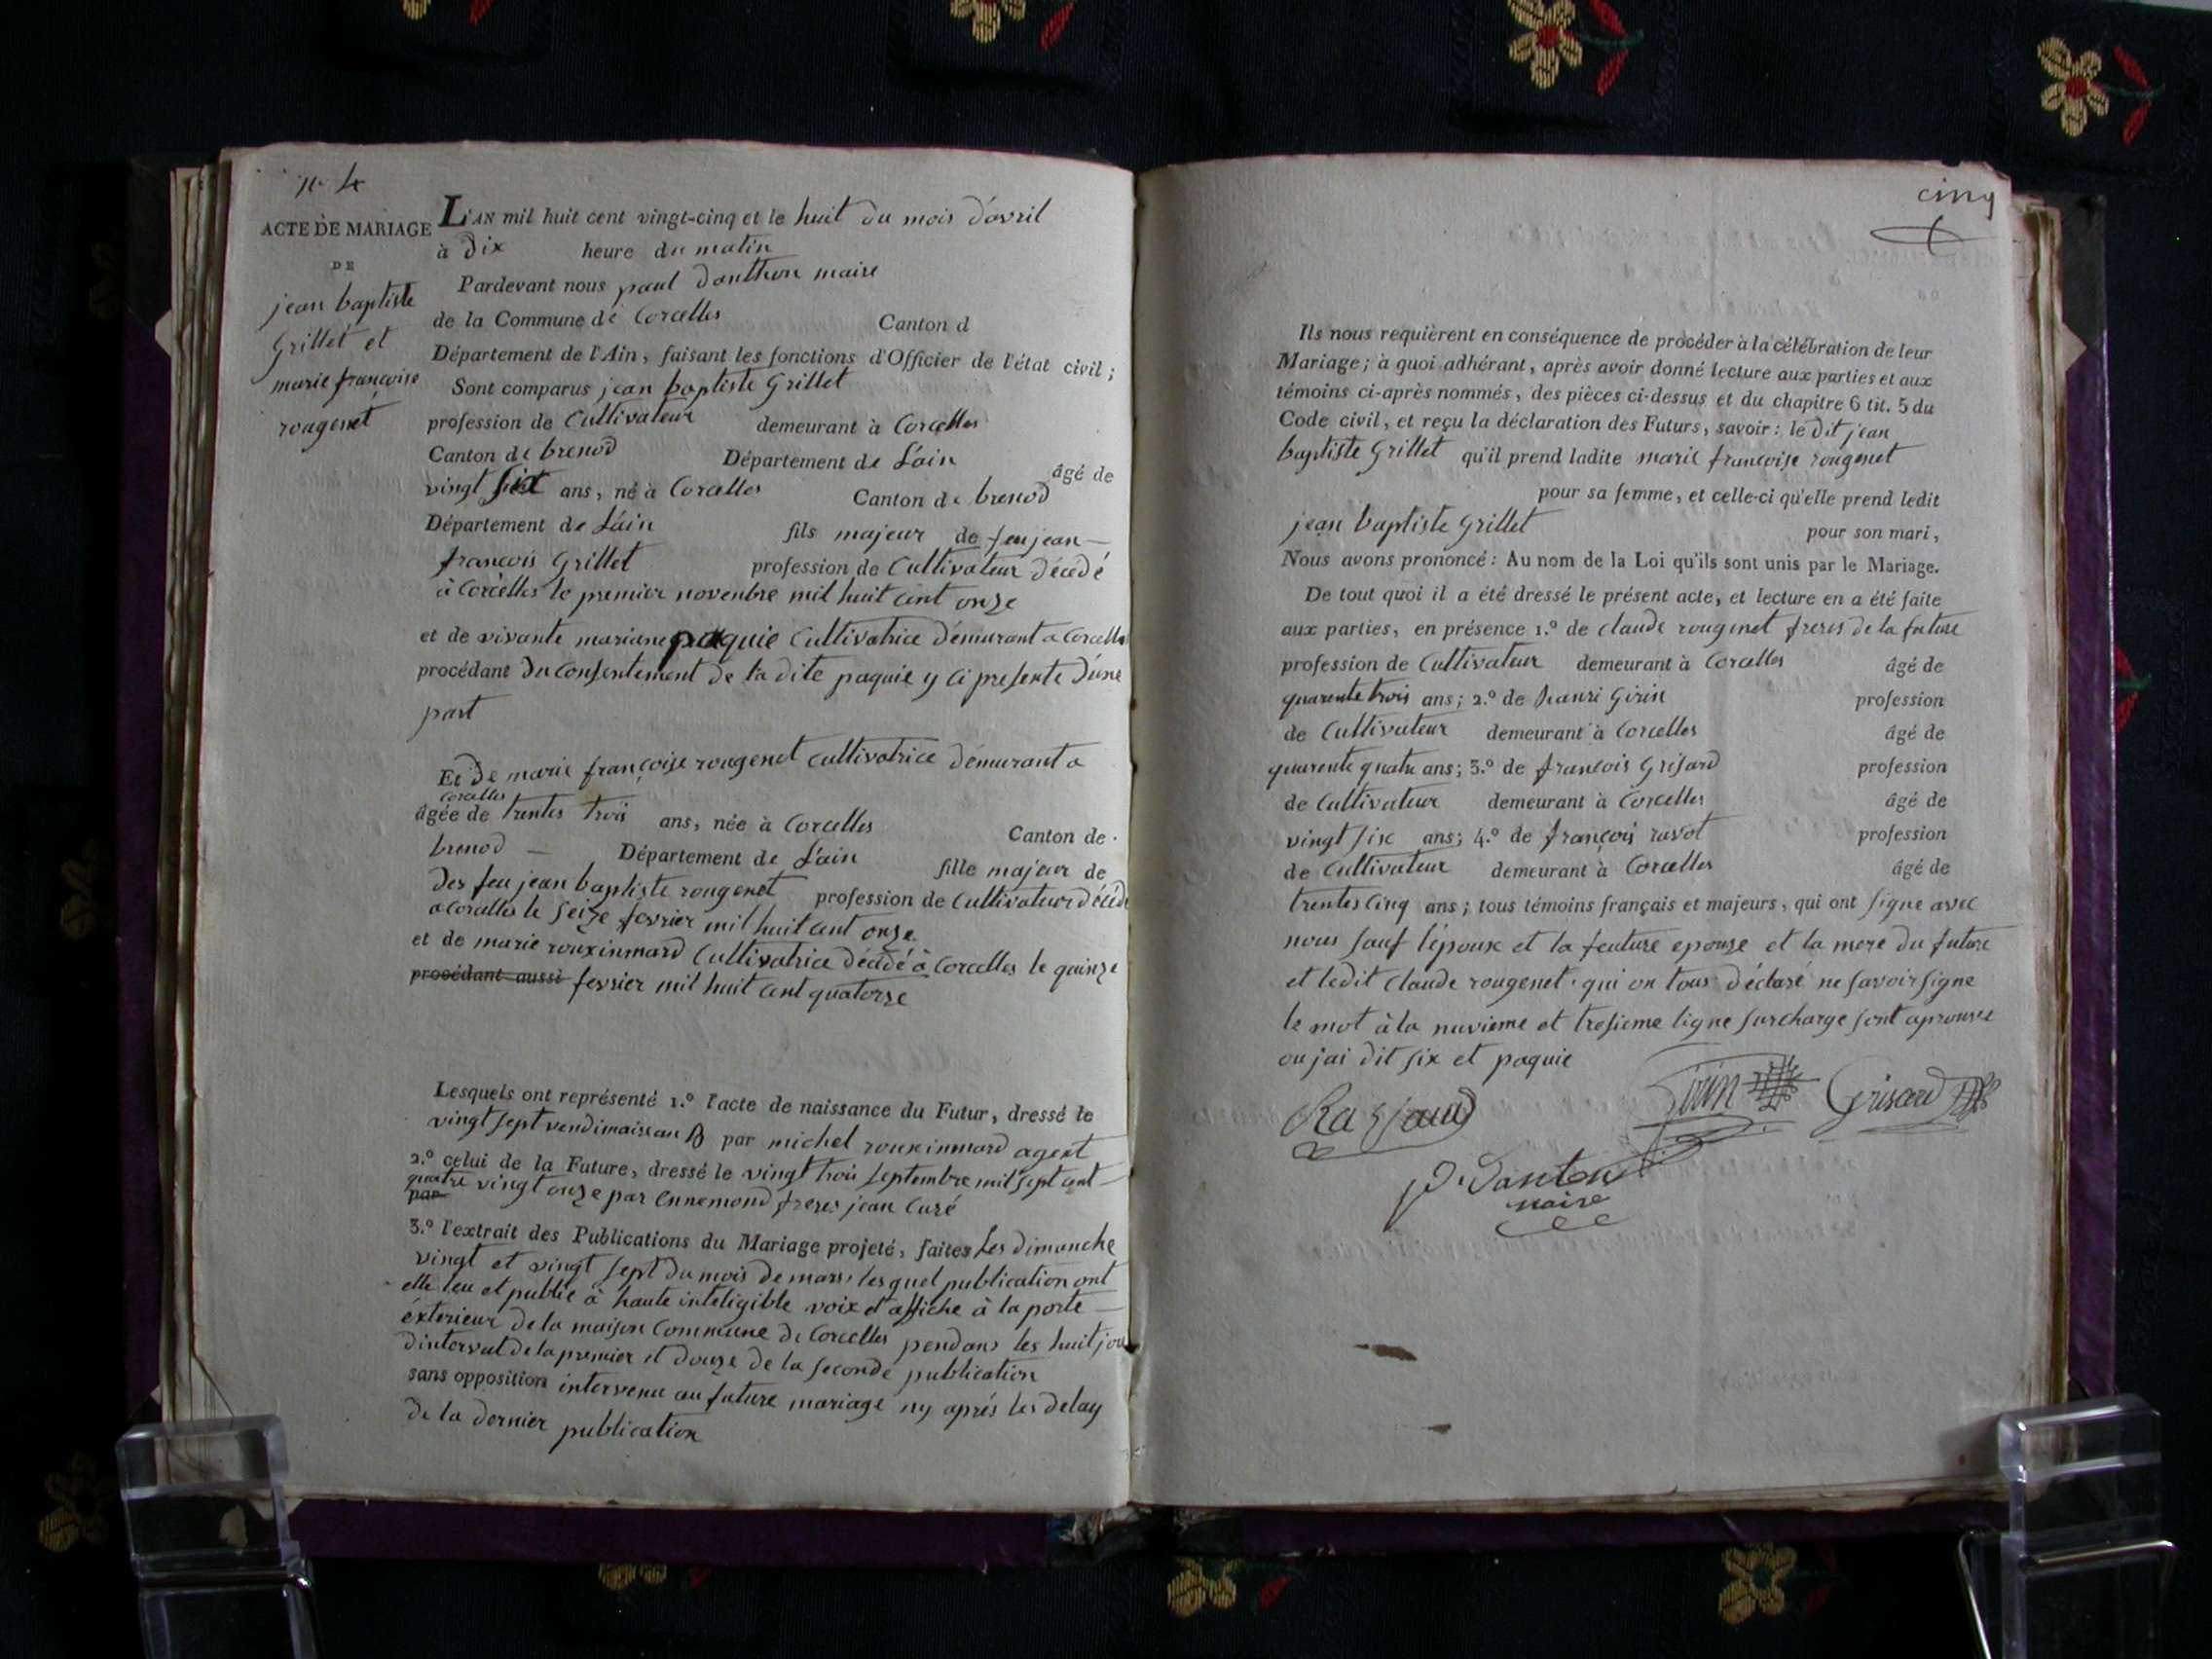 n° 4
ACTE DE MARIAGE
DE
jean baptiste
Grillet et
marie françoise
rougenet
L'AN mil huit cent vingt-cinq et le huit du mois d'avril
à dix heure du matin
Pardevant nous paul danthon maire
de la Commune de Corcelles Canton d
Département de l'Ain, faisant les fonctions d'Officier de l'état civil ;
Sont comparus jean baptiste Grillet
profession de Cultivateur demeurant à Corcelles
Canton de brenod Département de L'ain âgé de
vingt six ans, né à Corcelles Canton de brenod
Département de L'ain fils majeur de feu jean
françois Grillet profession de Cultivateur décédé
à Corcelles le premier novenbre mil huit cent onze
et de vivante mariane paquie Cultivatrice démurant a Corcelles
procédant du Consentement de la dite paquie y ci presente d'une
part
Et De marie françoise rougenet cultivatrice démurant a
Corcelles
âgée de trentes trois ans, née à Corcelles Canton de
brenod Département de L'ain fille majeur de
des feu jean baptiste rougenet profession de Cultivateur décédé
a Corcelles le seize fevrier mil huit cent onze
et de marie rouxinmard Cultivatrice décédé à Corcelles le quinze
procédant aussi fevrier mil huit cent quatorze
Lesquels ont représenté 1.° l'acte de naissance du Futur, dressé le
vingt sept vendimaise an par michel rouxinmard agent
2.° celui de la Future, dressé le vingt trois septembre mil sept cent
quatre vingt onze par Ennemond freres jean Curé
par
3.° l'extrait des Publications du Mariage projeté, faites Les dimanche
vingt et vingt sept du mois de mars, les quel publication ont
etté leu et publié à haute inteligible voix et affiche à la porte
exterieur de la maison Commune de Corcelles pendans les huit jou
d'interval de la premier et douze de la seconde publication
sans opposition intervenu au future mariage ny aprés les delay
de la dernier publication
cinq
Ils nous requièrent en conséquence de procéder à la célébration de leur
Mariage ; à quoi adhérant, après avoir donné lecture aux parties et aux
témoins ci-après nommés, des pièces ci-dessus et du chapitre 6 tit. 5 du
Code civil, et reçu la déclaration des Futurs, savoir : le dit jean
baptiste Grillet qu'il prend ladite marie françoise rougenet
pour sa femme, et celle-ci qu'elle prend ledit
jean baptiste Grillet pour son mari,
Nous avons prononcé : Au nom de la Loi qu'ils sont unis par le Mariage.
De tout quoi il a été dressé le présent acte, et lecture en a été faite
aux parties, en présence 1.° de claude rougenet freres de la future
profession de Cultivateur demeurant à Corcelles âgé de
quarente trois ans ; 2.° de hanri Girin profession
de Cultivateur demeurant à Corcelles âgé de
quarente quatre ans ; 3.° de françois Grisard profession
de Cultivateur demeurant à Corcelles âgé de
vingt six ans ; 4.° de françois ravot profession
de Cultivateur demeurant à Corcelles âgé de
trentes Cinq ans ; tous témoins français et majeurs, qui ont signe avec
nous sauf l'époux et la feuture epouse et la mere du future
et ledit Claude rougenet qui on tous déclaré ne savoir signe
le mot à la nuvieme et tresieme ligne surcharge sont aprouves
ou jai dit six et paquie
Girin Grisard
P. Danton
maire